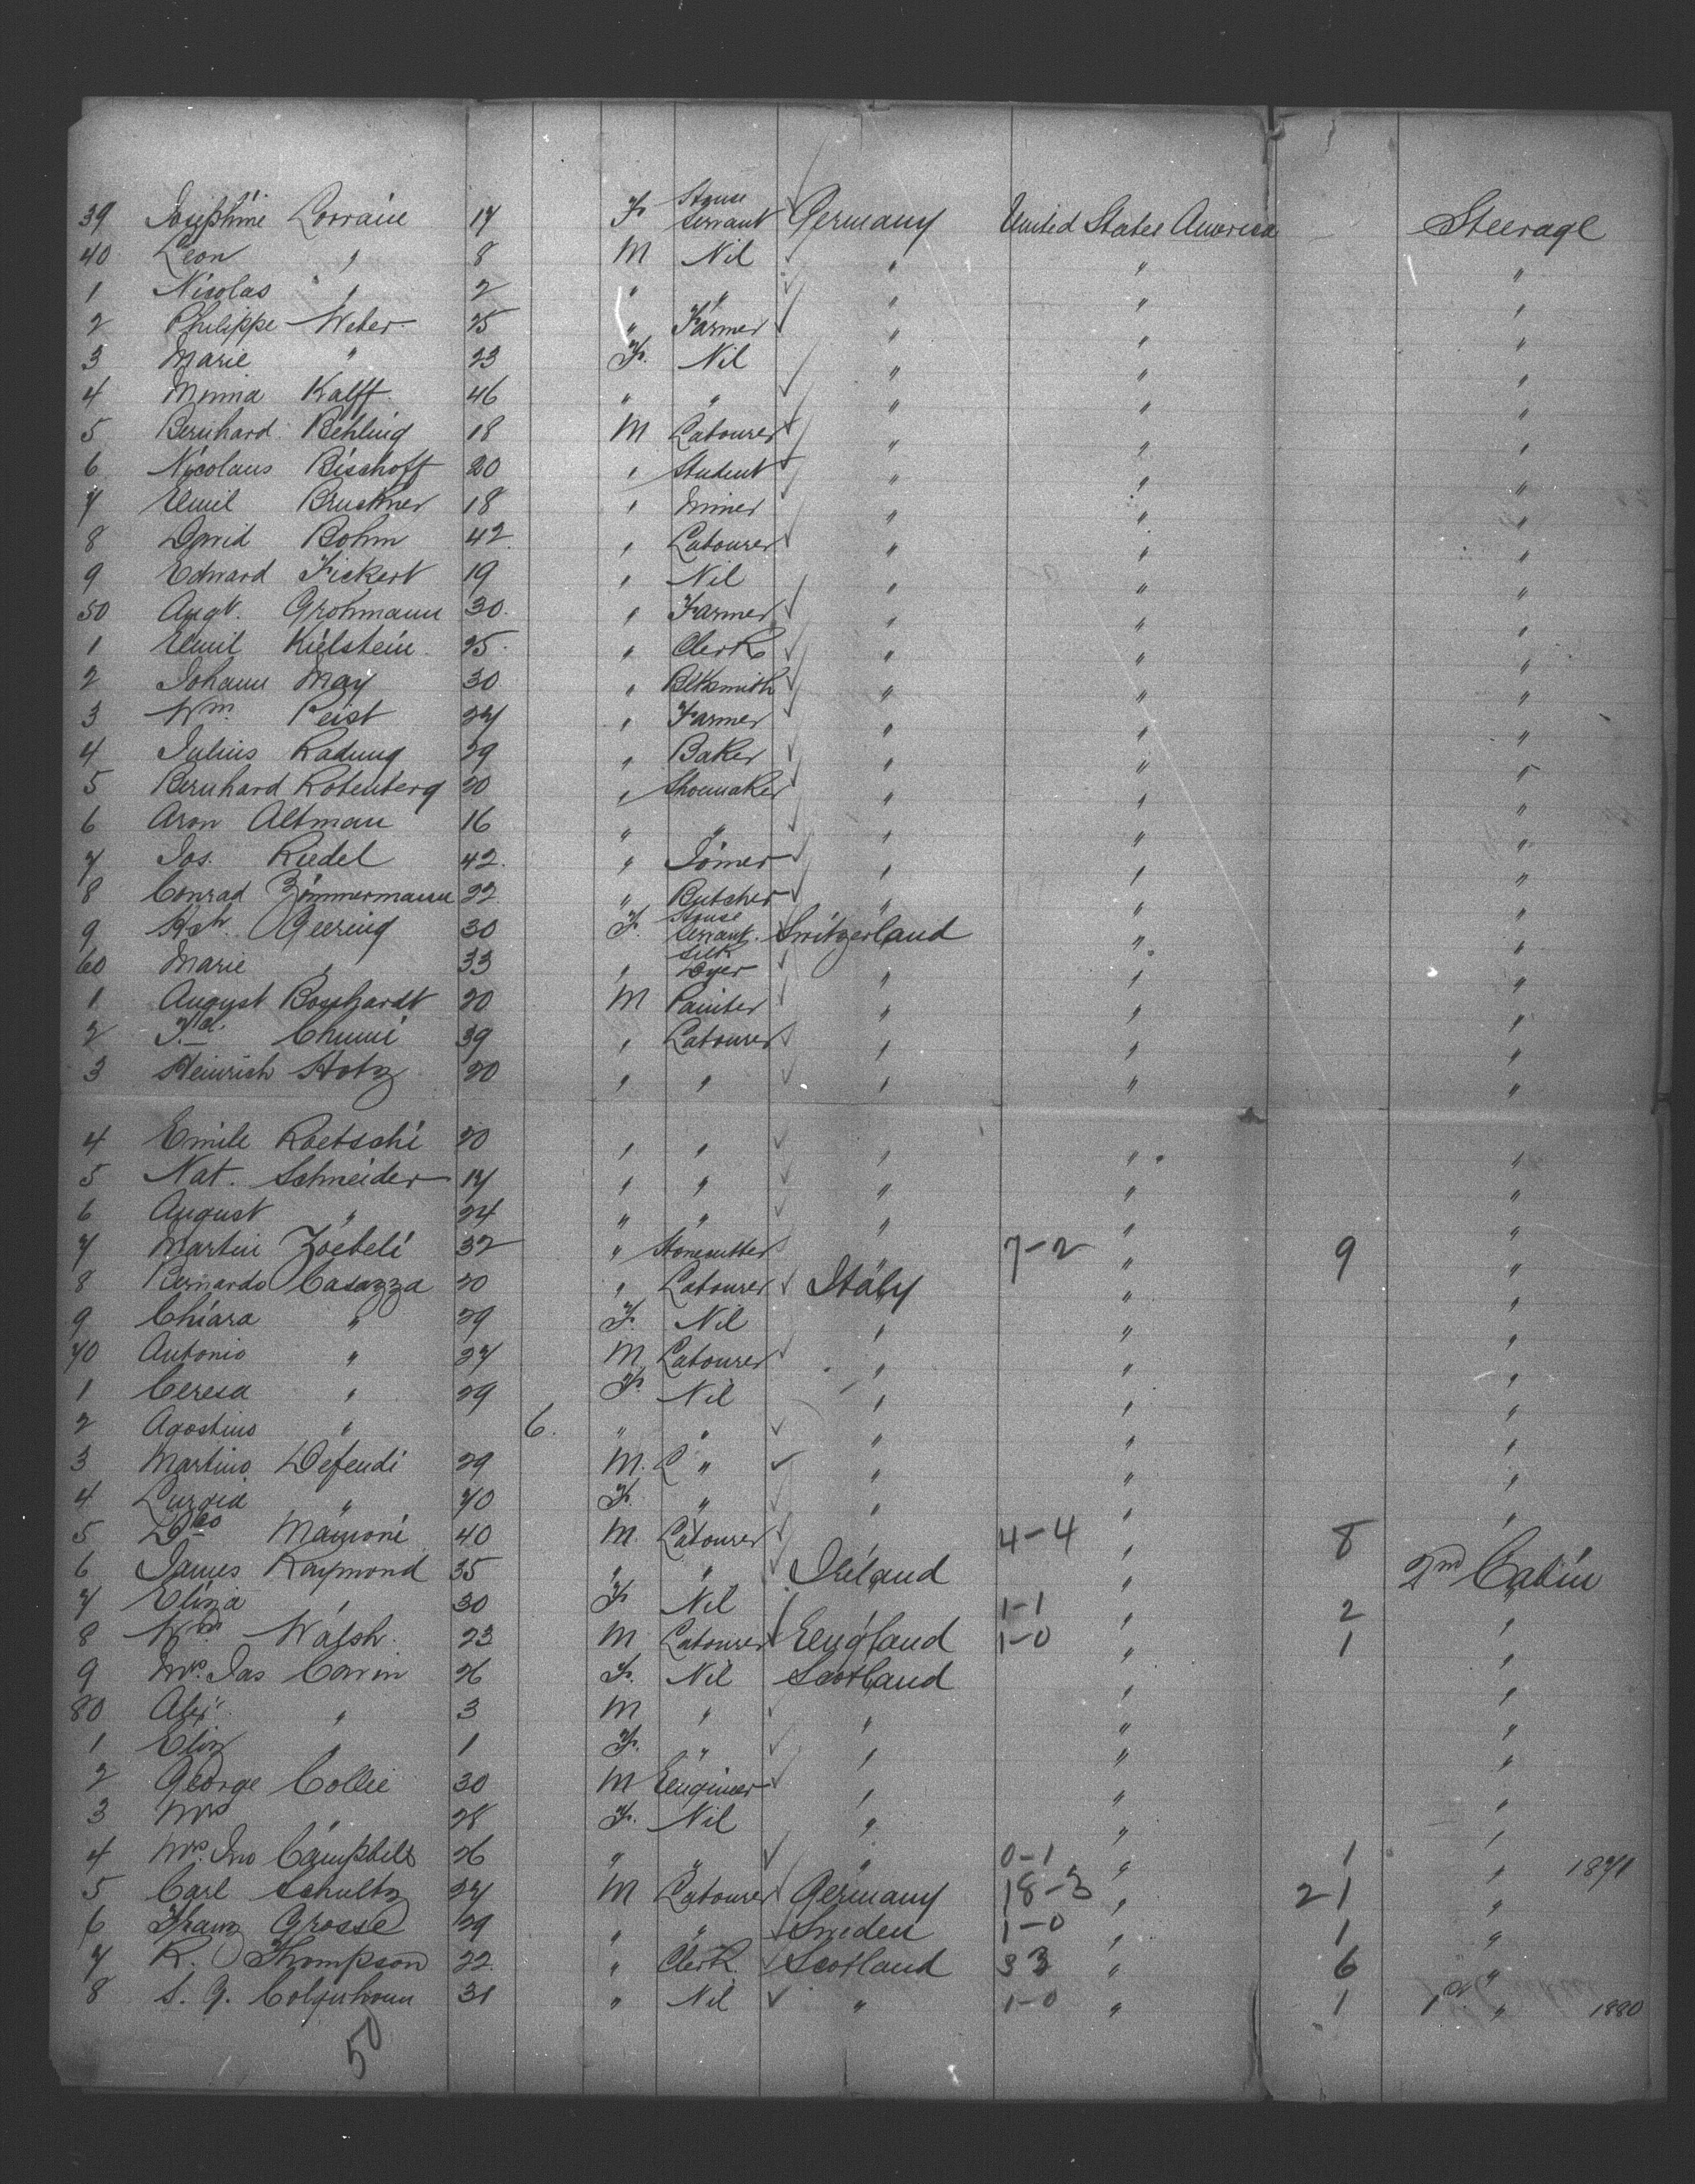 39 Josephine Lorraine 17 F House Servant Germany United States America Steerage
40 Leon " 8 M Nil " " "
1 Nicolas " 2 " " " " "
2 Philippe Weber 25 " Farmer " " "
3 Marie " 23 F. Nil " " "
4 Minna Kalff 46 " " " " "
5 Bernhard Behling 18 M Labourer " " "
6 Nicolaus Bischoff 20 " Student " " "
7 Emil Bruckner 18 " Miner " " "
8 David Bohm 42 " Labourer " " "
9 Edward Fickert 19 " Nil " " "
50 Augt. Grohmann 30 " Farmer " " "
1 Emil Kielstein 25 " Clerk " " "
2 Johann May 30 " Blksmith " " "
3 Wm. Peist 27 " Farmer " " "
4 Julius Radung 29 " Baker " " "
5 Bernhard Rotenberg 20 " Shoemaker " " "
6 Aron Altman 16 " " " " "
7 Jos. Riedel 42 " Joiner " " "
8 Conrad Zimmermann 22 " Butcher " " "
9 Geering 30 F. House Servant. Switzerland " "
60 Marie " 33 " Silk Dyer " " "
1 August Bosshardt 20 M Painter " " "
2 Chumi 39 " Labourer " " "
3 Heinrich Hotz 20 " " " " "
4 Emile Roetschi 20 " " " " "
5 Nat. Schneider 17 " " " " "
6 August " 24 " " " " "
7 Martin Zoebeli 32 " Stonecutter " 7-2 " 9 "
8 Bernardo Casazza 20 " Labourer Italy " "
9 Chiara " 29 F. Nil " " "
70 Antonio " 27 M Labourer " " "
1 Ceresa " 29 F. Nil " " "
2 Agostino " 6. " " " " "
3 Martino Defendi 29 M. L " " " "
4 " 70 F. " " " "
5 40 M. Labourer 4-4 " 8 "
6 James Raymond 35 " " Ireland " 2nd Cabin
7 Eliza " 30 F Nil 1-1 " 2 "
8 Wm. Walsh. 23 M Labourer England 1-0 " 1 "
9 Mrs. Jas Cowin 26 F. Nil Scotland " "
80 Alex " 3 M " " " "
1 Eliz " 1 F. " " " "
2 George Collie 30 M Engineer " " "
3 Mrs " 28 F. Nil " " "
4 Mrs. Jno Campbell 26 " " " 0-1 " 1 " 1871
5 Carl Schultz 27 M Labourer Germany 18-3 " 21 "
6 Franz Grosse 29 " " Sweden 1-0 " 1 "
7 R. Thompson 22 " Clerk. Scotland 33 " 6 "
8 S. G. Colquhoun 31 " Nil " 1-0 " 1 1st " 1880
50